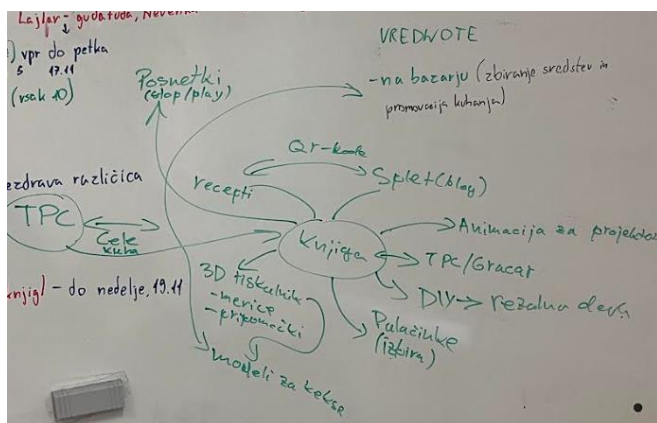 Lajfar - gudatuda,
) vpr do petka
5 17.11
(vsak 10)
ezdrava različica
TPC
Cele
kuha
knjig) - do nedelje, 19.11
VREDNOTE
- na bazarju (zbiranje sredstev in
promovacija kuhanja)
Posnetki
(stop/play)
Qr-kode
recepti
Splet (blog)
Knjiga
Animacija za projektor
TPC/Gracar
DIY → rezalna deska
Palačinke
(izbira)
3D tiskalnik
- merice
- pripomočki
modeli za kekse